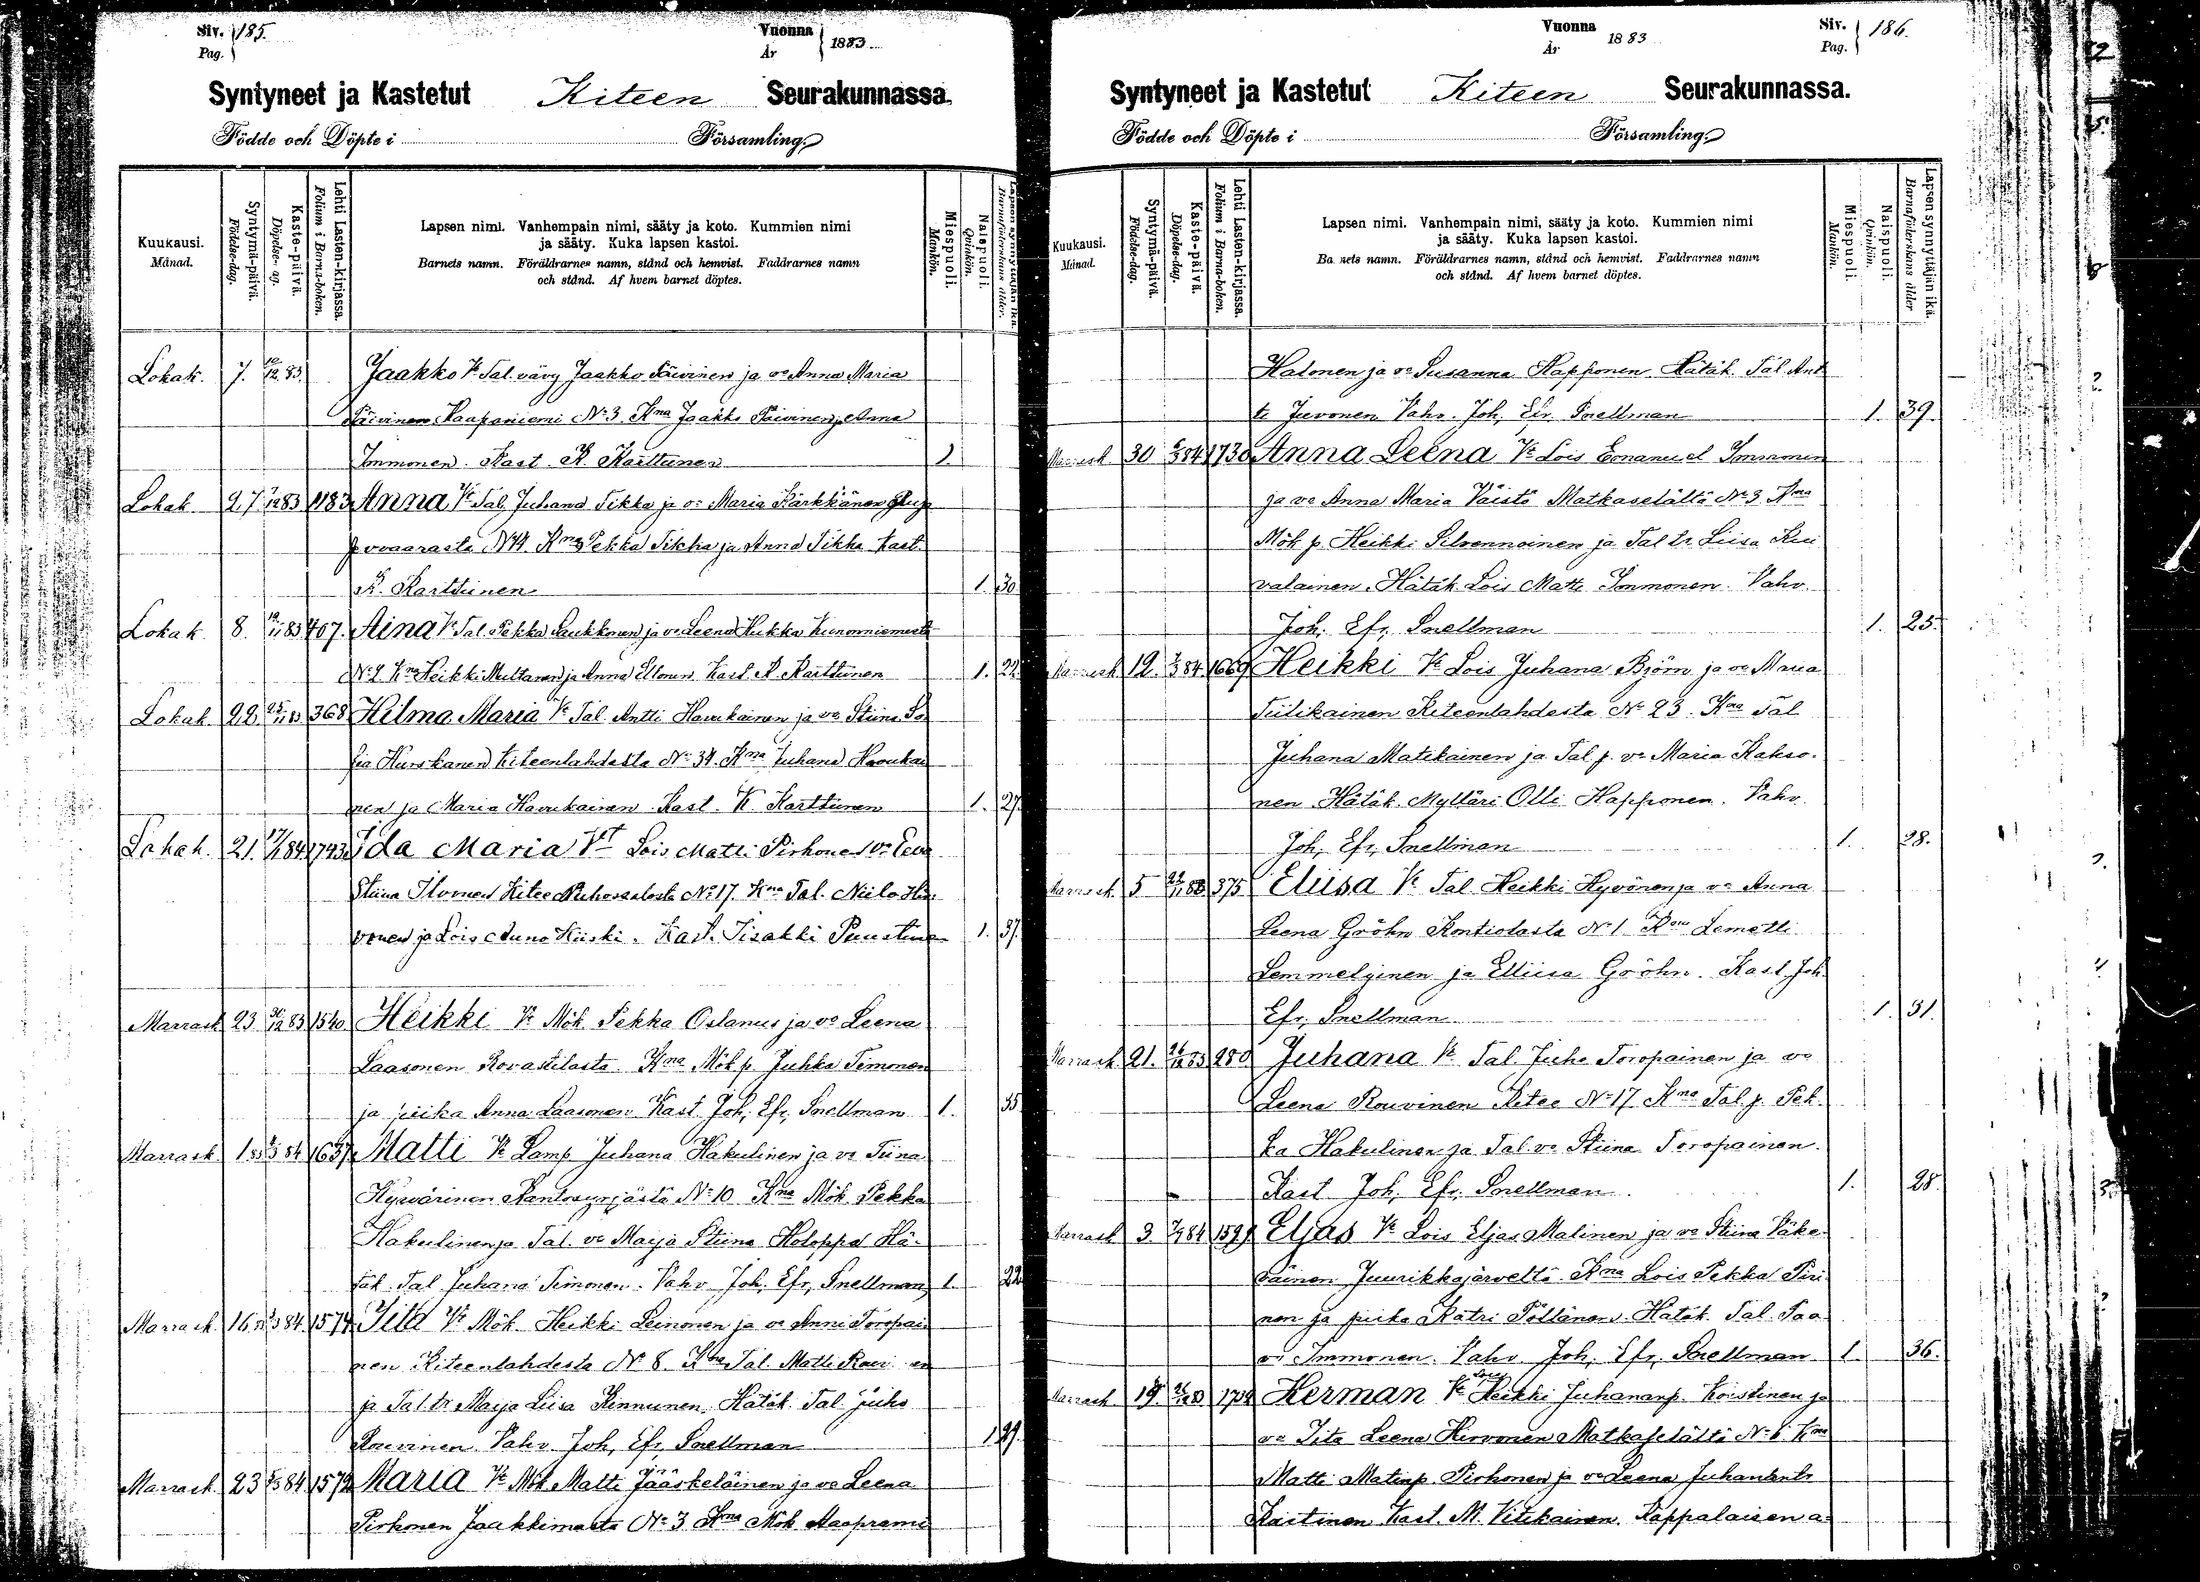 Siv. 185.
Pag.
Vuonna 1883
År
Syntyneet ja Kastetut Kiteen Seurakunnassa.
Födde och Döpte i Församling.
Kuukausi. Månad.
Syntymä-päivä. Födelse-dag.
Kaste-päivä.
Lehti Lasten-kirjassa. Folium i Barna-boken.
Lapsen nimi. Vanhempain nimi, sääty ja koto. Kummien nimi
ja sääty. Kuka lapsen kastoi.
Barnets namn. Föräldrarnes namn, stånd och hemvist. Faddrarnes namn
och stånd. Af hvem barnet döptes.
Miespuoli. Mankön.
Naispuoli. Qvinkön.
Lokak. 7. Jaakko Vt Tal. vävy Jaakko Päivinen ja vo Anna Maria
Päivinen Haapaniemi No 3. Kna Jaakko Päivinen ja Anna
Immonen. Kast. K. Karttunen 1.
Lokak. 27 1183 Anna Vt Tal. Juhana Tikka ja vo Maria Kärkkänen
Kna Pekka Tikka ja Anna Tikka Kast.
K. Karttunen 1. 30
Lokak. 8. 467. Aina Vt Tal. Pekka Laukkanen ja vo Leena Kukka
Kna Heikki Multanen ja Anna Kast. K. Karttunen 1. 22
Lokak. 22 368 Hilma Maria Vt Tal. Antti Havukainen ja vo Stiina So
fia Hurskanen Kiteenlahdesta No 34. Kna Juhana Havukai
nen ja Maria Havukainen Kast. K. Karttunen 1. 27
Lokak. 21. 1743 Ida Maria Vt Lois Matti Pirhonen vo Eeva
Stiina Kitee No 17. Kna Tal. Niilo
vonen ja Lois Kiiski. Kast. Iisakki Puustinen 1. 37.
Marrask 23 1540 Heikki Vt Mök. Pekka Oslanus ja vo Leena
Laasonen Rovastilasta. Kna Mök p. Juhka Timonen
ja piika Anna Laasonen Kast. Joh. Efr. Snellman 1. 35
Marrask 1 1637 Matti Vt Lamp. Juhana Hakulinen ja vo Tiina
Hyvärinen No 10 Kna Mök Pekka
Hakulinen ja Tal. vo Maija Stiina Holoppa Hä-
täk. Tal Juhana Timonen. Vahv. Joh. Efr. Snellman 1. 22
Marrask 16 1574 Iita Vt Mök. Heikki Leinonen ja vo Anni Toropai
nen Kiteenlahdesta No 8. Kna Tal. Matti
ja Tal. tr Maija Liisa Kinnunen Hätäk. Tal. Juho
Rouvinen Vahv. Joh. Efr. Snellman 1. 29.
Marrask 23 1572 Maria Vt Mök Matti Jääskeläinen ja vo Leena
Pirhonen Jaakkimasta No 3 Kna Mök
Vuonna 1883
År
Siv. 186.
Pag.
Syntyneet ja Kastetut Kiteen Seurakunnassa.
Födde och Döpte i Församling.
Kuukausi. Månad.
Syntymä-päivä. Födelse-dag.
Kaste-päivä. Döpelse-dag.
Lehti Lasten-kirjassa. Folium i Barna-boken.
Lapsen nimi. Vanhempain nimi, sääty ja koto. Kummien nimi
ja sääty. Kuka lapsen kastoi.
Ba nets namn. Föräldrarnes namn, stånd och hemvist. Faddrarnes namn
och stånd. Af hvem barnet döptes.
Miespuoli. Mankön.
Naispuoli. Qvinkön.
Lapsen synnyttäjän ikä. Barnaföderskans ålder
Halonen ja vo Susanna Happonen Hätäk. Tal. Ant
ti Juvonen Vahv. Joh. Efr. Snellman 1. 39.
30 1730 Anna Leena Vt Lois Emanuel Immonen
ja vo Anna Maria Väistö Matkaselältä No 3 Kna
Mök p. Heikki Silvennoinen ja Tal tr Liisa Kui
valainen. Hätäk. Lois Matti Immonen. Vahv.
Joh. Efr. Snellman 1. 25.
12. 1669 Heikki Vt Lois Juhana Björn ja vo Maria
Tiilikainen Kiteenlahdesta No 23. Kna Tal
Juhana Matikainen ja Tal p. vo Maria Kakso-
nen Hätäk. Mylläri Olli Happonen. Vahv.
Joh. Efr. Snellman 1. 28.
Marrask 5 375 Eliisa Vt Tal Heikki Hyvönen ja vo Anna
Leena Gröhn Kontiolasta No 1 Kna Lemetti
Lemmetyinen ja Elliisa Gröhn. Kast. Joh.
Efr. Snellman 1. 31.
Marrask 21. 280 Juhana Vt Tal. Juho Toropainen ja vo
Leena Rouvinen Kitee No 17 Kna Tal. p. Pek-
ka Hakulinen ja Tal. vo Stiina Toropainen.
Kast Joh. Efr. Snellman. 1. 28.
Marrask 3. Eljas Vt Lois Eljas Malinen ja vo Stiina Väke-
väinen Juurikkajärveltä. Kna Lois Pekka Piri
nen ja piika Katri Pöllänen. Hätäk. Tal. Paa
vo Immonen. Vahv. Joh. Efr. Snellman 1. 36.
Marrask 19. Herman Vt Heikki Juhananp. Koistinen ja
vo Iita Leena Hirvonen Matkaselältä No 6. Kna
Matti Matinp. Pirhonen ja vo Leena Juhantytr
Kast. M. Vitikainen. Kappalaisen a-